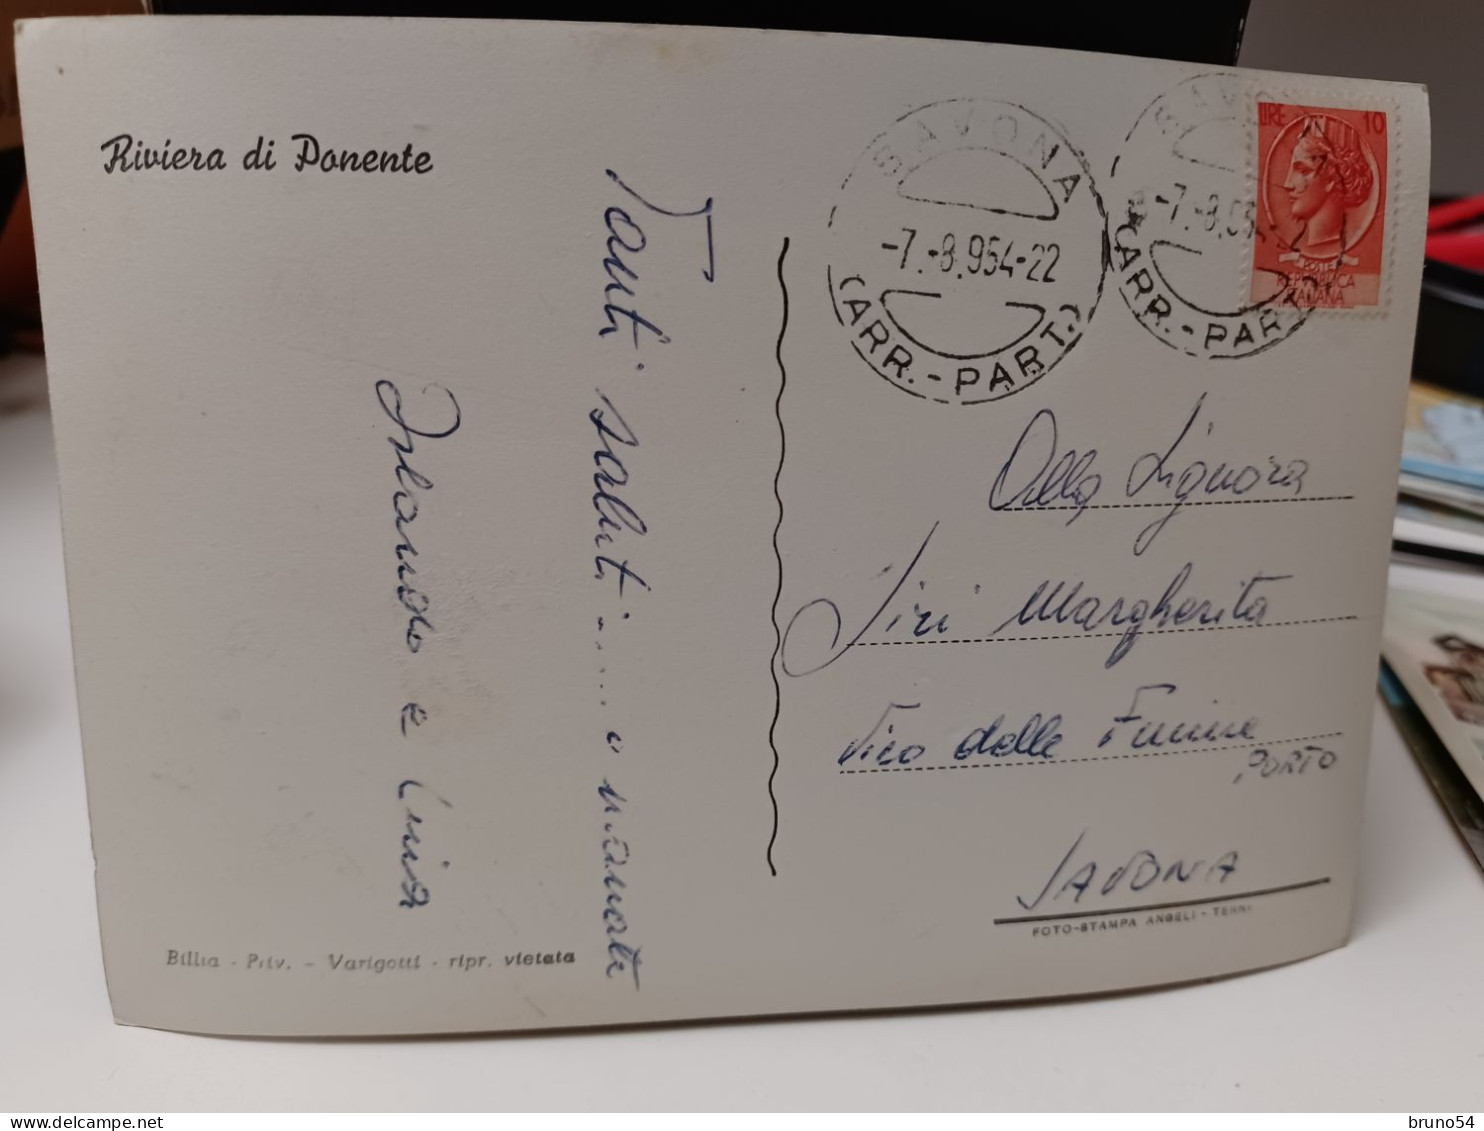 Riviera di Ponente
Tanti saluti
e
Billia - Priv. - Varigotti - ripr. vietata
SAVONA
-7.-8.954-22
(ARR.-PART.)
SAVONA
-7.-8.954-22
(ARR.-PART.)
LIRE 10
POSTE
REPUBBLICA
ITALIANA
Alla Signora
Siri Margherita
Vico delle Fucine
PORTO
SAVONA
FOTO-STAMPA ANGELI - TERNI
bruno54